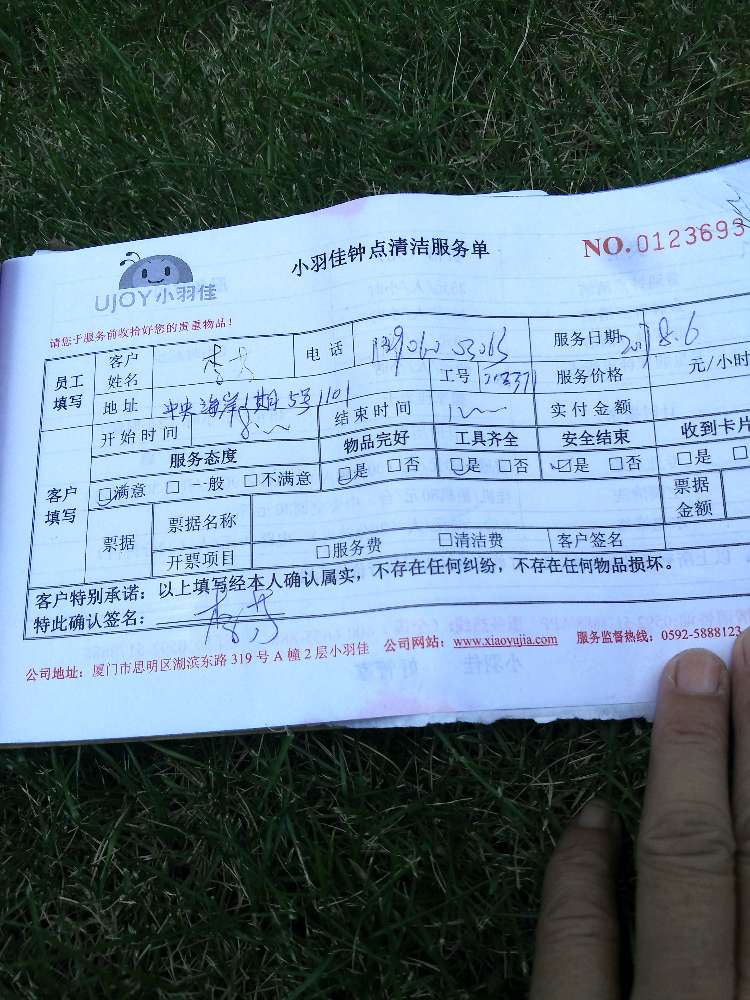 小羽佳钟点清洁服务单
NO. 0123693
UJOY小羽佳
请您于服务前收拾好您的贵重物品！
员工填写 客户姓名 李 电话 服务日期 2017.8.6
地址 中央海岸1期5号1101 工号 服务价格 元/小时
开始时间 8: 结束时间 实付金额
客户填写 服务态度 物品完好 工具齐全 安全结束 收到卡片
☑满意 □一般 □不满意 ☑是 □否 ☑是 □否 ☑是 □否 □是
票据 票据名称 票据金额
开票项目 □服务费 □清洁费 客户签名
客户特别承诺：以上填写经本人确认属实，不存在任何纠纷，不存在任何物品损坏。
特此确认签名：
公司地址：厦门市思明区湖滨东路 319 号 A 幢 2 层小羽佳 公司网站：www.xiaoyujia.com 服务监督热线：0592-5888123